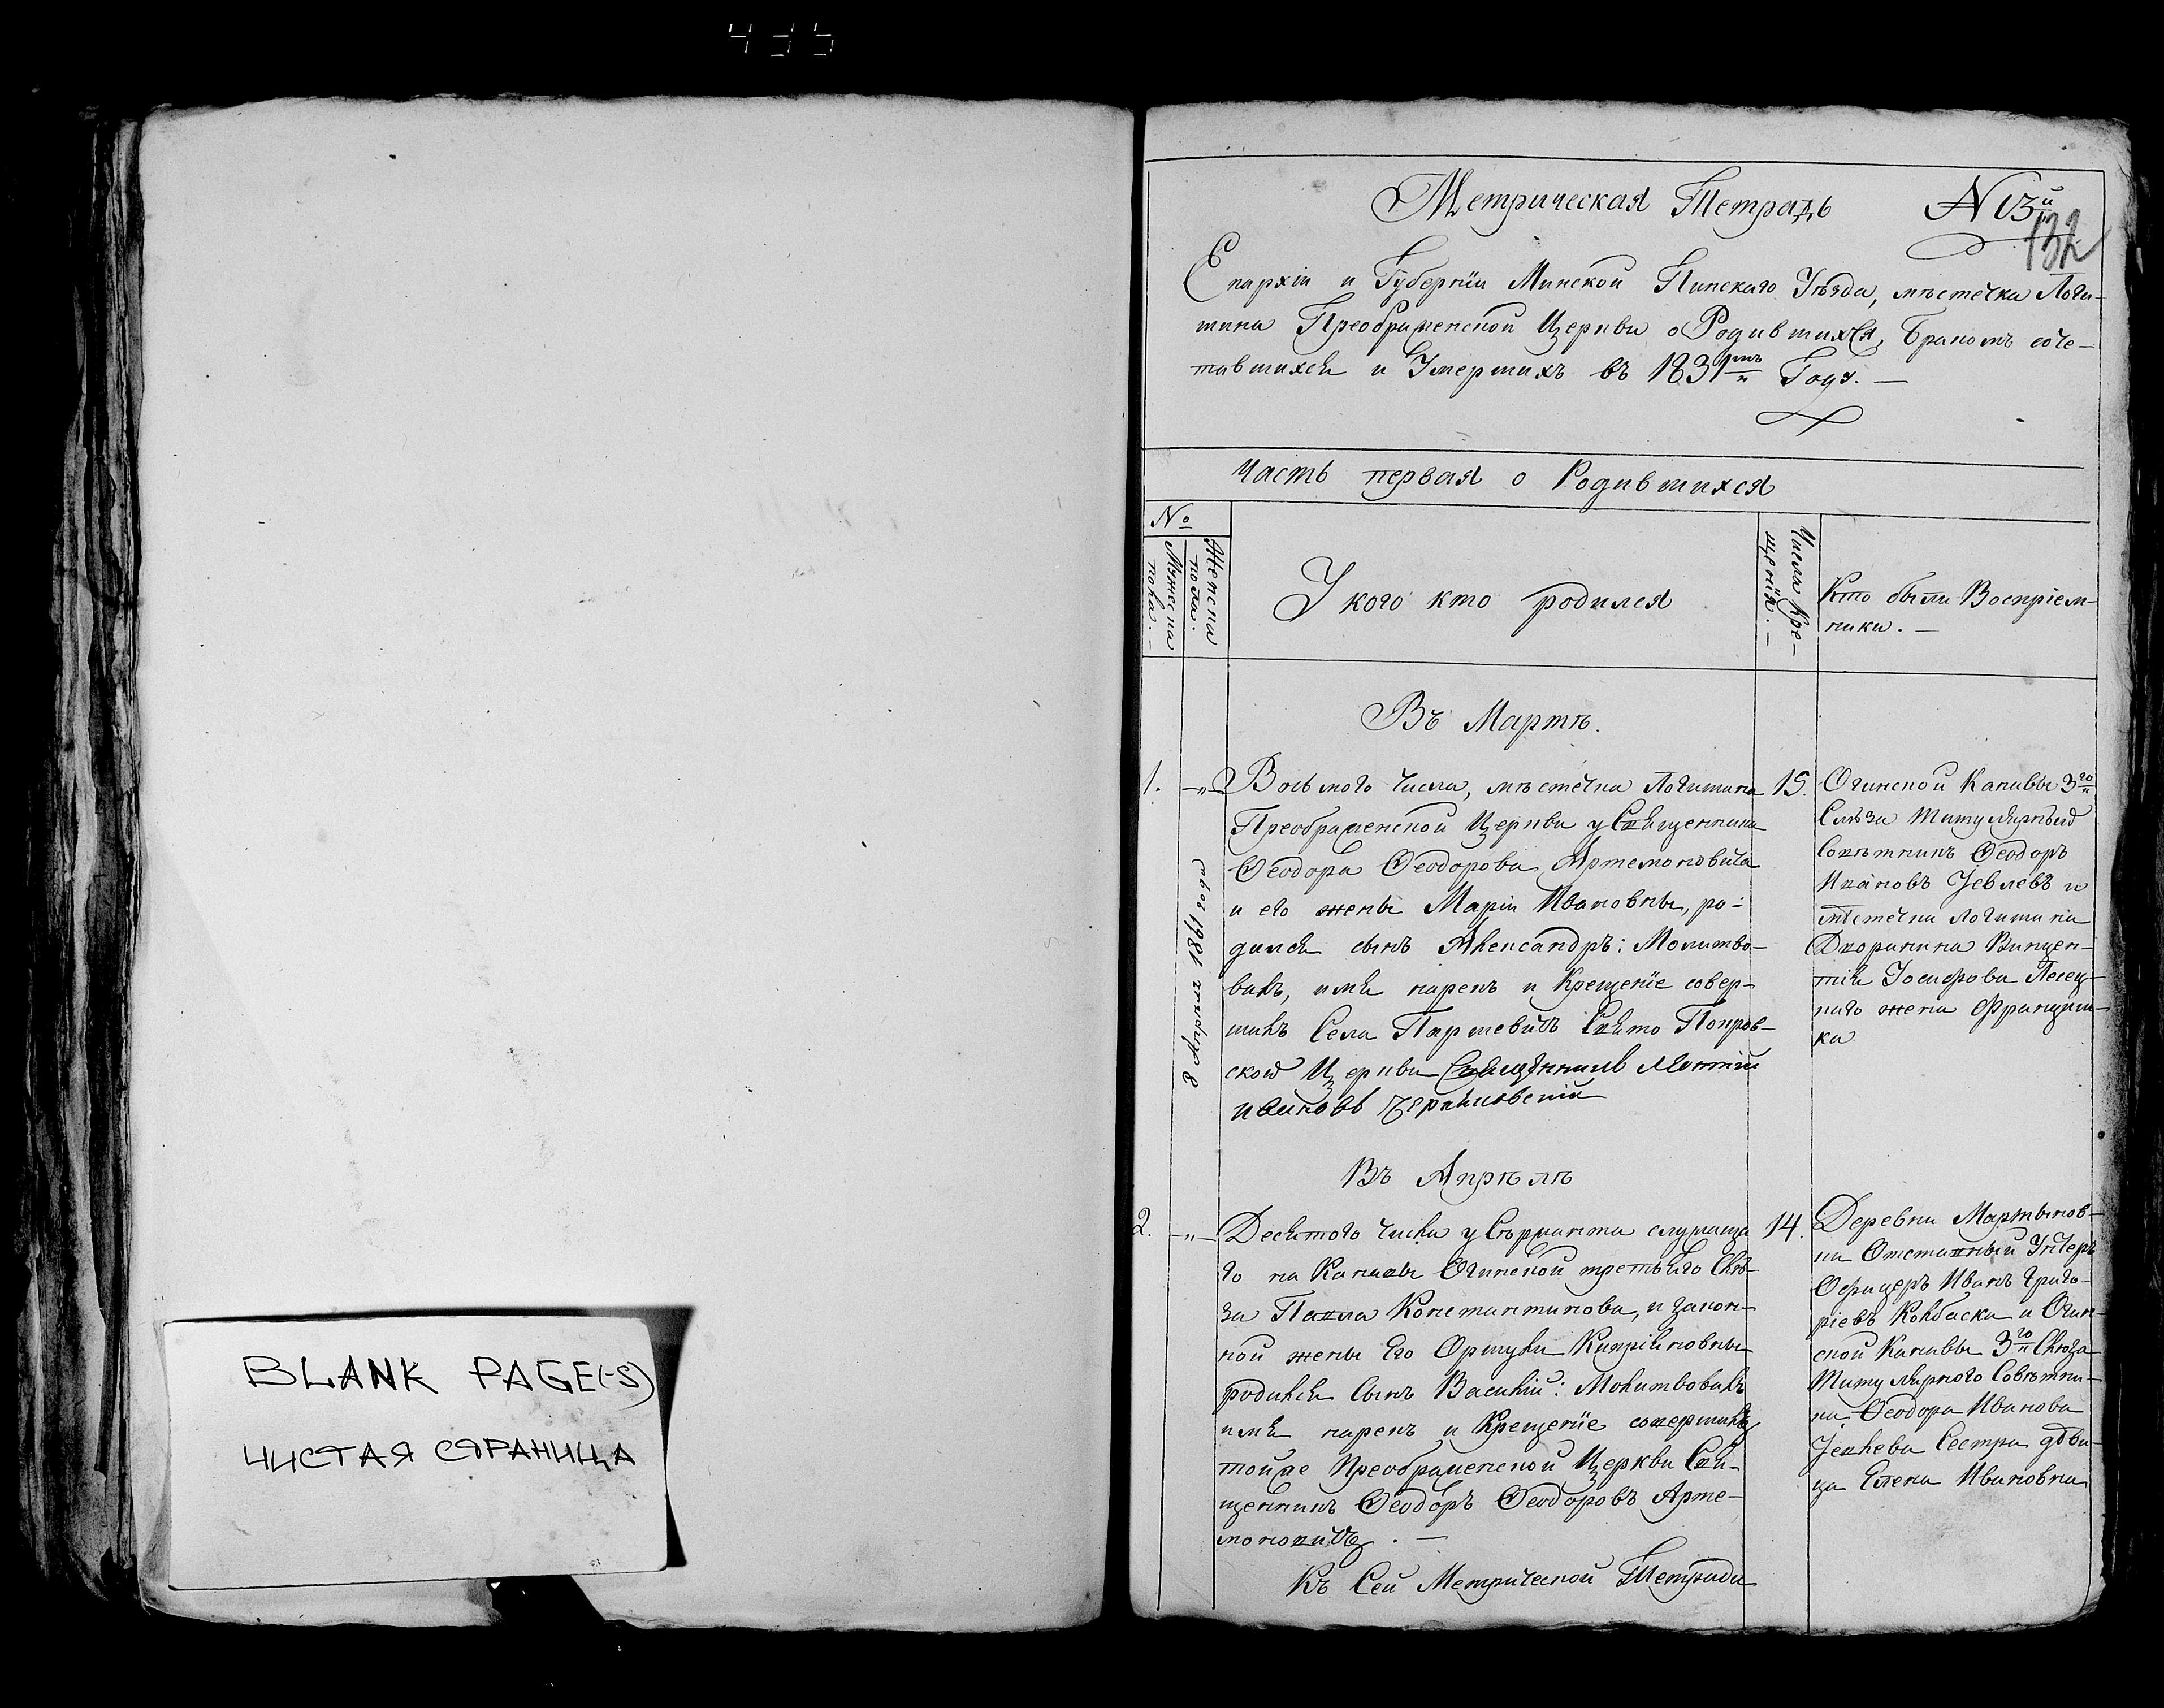 435
BLANK PAGE(-S)
ЧИСТАЯ СТРАНИЦА
Метрическая Тетрадь N 13й
132
Епархіи и Губерніи Минской Пинскаго Уѣзда, мѣстечка Логи-
шина Преображенской Церкви о Родившихся, Бракомъ соче-
тавшихся и Умершихъ въ 1831мъ Году. —
Часть первая о Родившихся
№
Мужеска
пола. —
Женска
пола.
У кого кто родился
Числа Кре-
щенія. —
Кто были Воспріем-
ники. —
Въ Мартѣ.
1. —"— Восьмого числа, мѣстечка Логишина
Преображенской Церкви у Священника
Ѳеодора Ѳеодорова Артемоновича
и его жены Маріи Ивановны, ро-
дился сынъ Александръ: Молитво-
валъ, имя нарекъ и Крещеніе совер-
шилъ Села Паршевичъ Свято Покров-
ской Церкви Священникъ
Ивановъ
8 Августа 1981 года
15.
Огинской Канавы 3го
Слюза Титулярный
Совѣтникъ Ѳеодоръ
Ивановъ и
мѣстечка Логишина
Дворянина Винцен-
тія Іосифова
жена Франциш-
ка
Въ Апрѣлѣ
2. —"— Десятого числа у Сержанта служаща
го на Канавы Огинской третьяго Слю-
за Павла Константинова, и закон-
ной жены Его Кипріановны
родился Сынъ Василій: Молитвовалъ
имя нарекъ и Крещеніе совершилъ
тойже Преображенской Церкви Свя-
щенникъ Ѳеодоръ Ѳеодоровъ Арте-
моновичъ. —
14.
Деревни Мартынов-
ки Отставный Унтеръ
Офицеръ Иванъ Григо-
ріевъ Колбаска и Огин-
ской Канавы 3го Слюза
Титулярного Совѣтни-
ка Ѳеодора Иванова
Сестра дѣви-
ца Елена Ивановна
Къ Сей Метрической Тетради